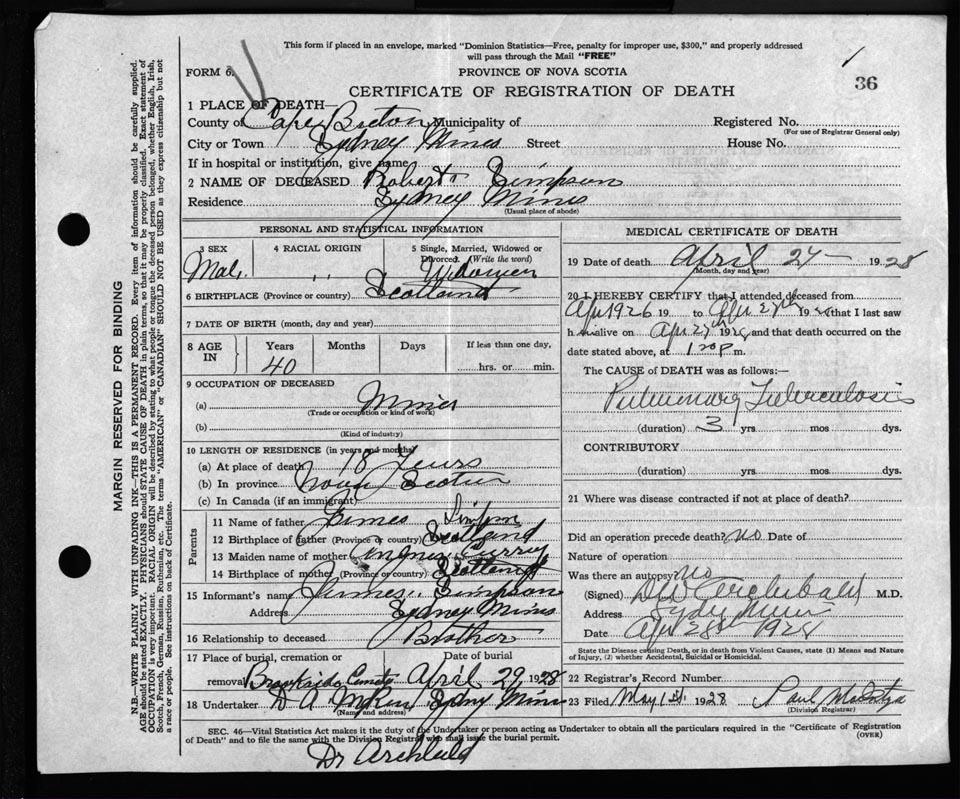 This form if placed in an envelope, marked "Dominion Statistics—Free, penalty for improper use, $300," and properly addressed
will pass through the Mail "FREE"
FORM 6.
PROVINCE OF NOVA SCOTIA
1
36
CERTIFICATE OF REGISTRATION OF DEATH
1 PLACE OF DEATH—
County of Cape Breton Municipality of Registered No.
(For use of Registrar General only)
City or Town Sydney Mines Street House No.
If in hospital or institution, give name
2 NAME OF DECEASED Robert Simpson
Residence Sydney Mines
(Usual place of abode)
PERSONAL AND STATISTICAL INFORMATION
3 SEX 4 RACIAL ORIGIN 5 Single, Married, Widowed or
Divorced. (Write the word)
Male. " Widower
6 BIRTHPLACE (Province or country) Scotland
7 DATE OF BIRTH (month, day and year)
8 AGE IN Years Months Days If less than one day,
40 hrs. or min.
9 OCCUPATION OF DECEASED
(a) Miner
(Trade or occupation or kind of work)
(b)
(Kind of industry)
10 LENGTH OF RESIDENCE (in years and months)
(a) At place of death 18 Years
(b) In province Nova Scotia
(c) In Canada (if an immigrant)
Parents
11 Name of father James Simpson
12 Birthplace of father (Province or country) Scotland
13 Maiden name of mother Curry
14 Birthplace of mother (Province or country) Scotland
15 Informant's name James Simpson
Address Sydney Mines
16 Relationship to deceased Brother
17 Place of burial, cremation or removal Date of burial
Brookside Cemetery April 29, 1928
18 Undertaker D A Sydney Mines
(Name and address)
MEDICAL CERTIFICATE OF DEATH
19 Date of death April 27— 1928
(Month, day and year)
20 I HEREBY CERTIFY that I attended deceased from
Apr 1926 19 to Apr 27th 1928 that I last saw
h alive on Apr 27th 1928 and that death occurred on the
date stated above, at 1 m.
The CAUSE of DEATH was as follows:—
Pulmonary Tuberculosis
(duration) 3 yrs mos dys.
CONTRIBUTORY
(duration) yrs mos dys.
21 Where was disease contracted if not at place of death?
Did an operation precede death? no Date of
Nature of operation
Was there an autopsy no
(Signed) Archibald M.D.
Address Sydney Mines
Date Apr 28th 1928
State the Disease causing Death, or in death from Violent Causes, state (1) Means and Nature
of Injury, (2) whether Accidental, Suicidal or Homicidal.
22 Registrar's Record Number
23 Filed May 1st 1928 Paul
(Division Registrar)
SEC. 46—Vital Statistics Act makes it the duty of the Undertaker or person acting as Undertaker to obtain all the particulars required in the "Certificate of Registration
of Death" and to file the same with the Division Registrar who shall issue the burial permit.
(OVER)
Dr Archibald
MARGIN RESERVED FOR BINDING
N.B.—WRITE PLAINLY WITH UNFADING INK—THIS IS A PERMANENT RECORD. Every item of information should be carefully supplied.
AGE should be stated EXACTLY. PHYSICIANS should STATE CAUSE OF DEATH in plain terms, so that it may be properly classified. Exact statement of
OCCUPATION is very important. RACIAL ORIGIN will be described by stating to what people or tongue the deceased person belonged, whether English, Irish,
Scotch, French, German, Russian, Ruthenian, etc. The terms "AMERICAN" or "CANADIAN" SHOULD NOT BE USED as they express citizenship but not
a race or people. See instructions on back of Certificate.